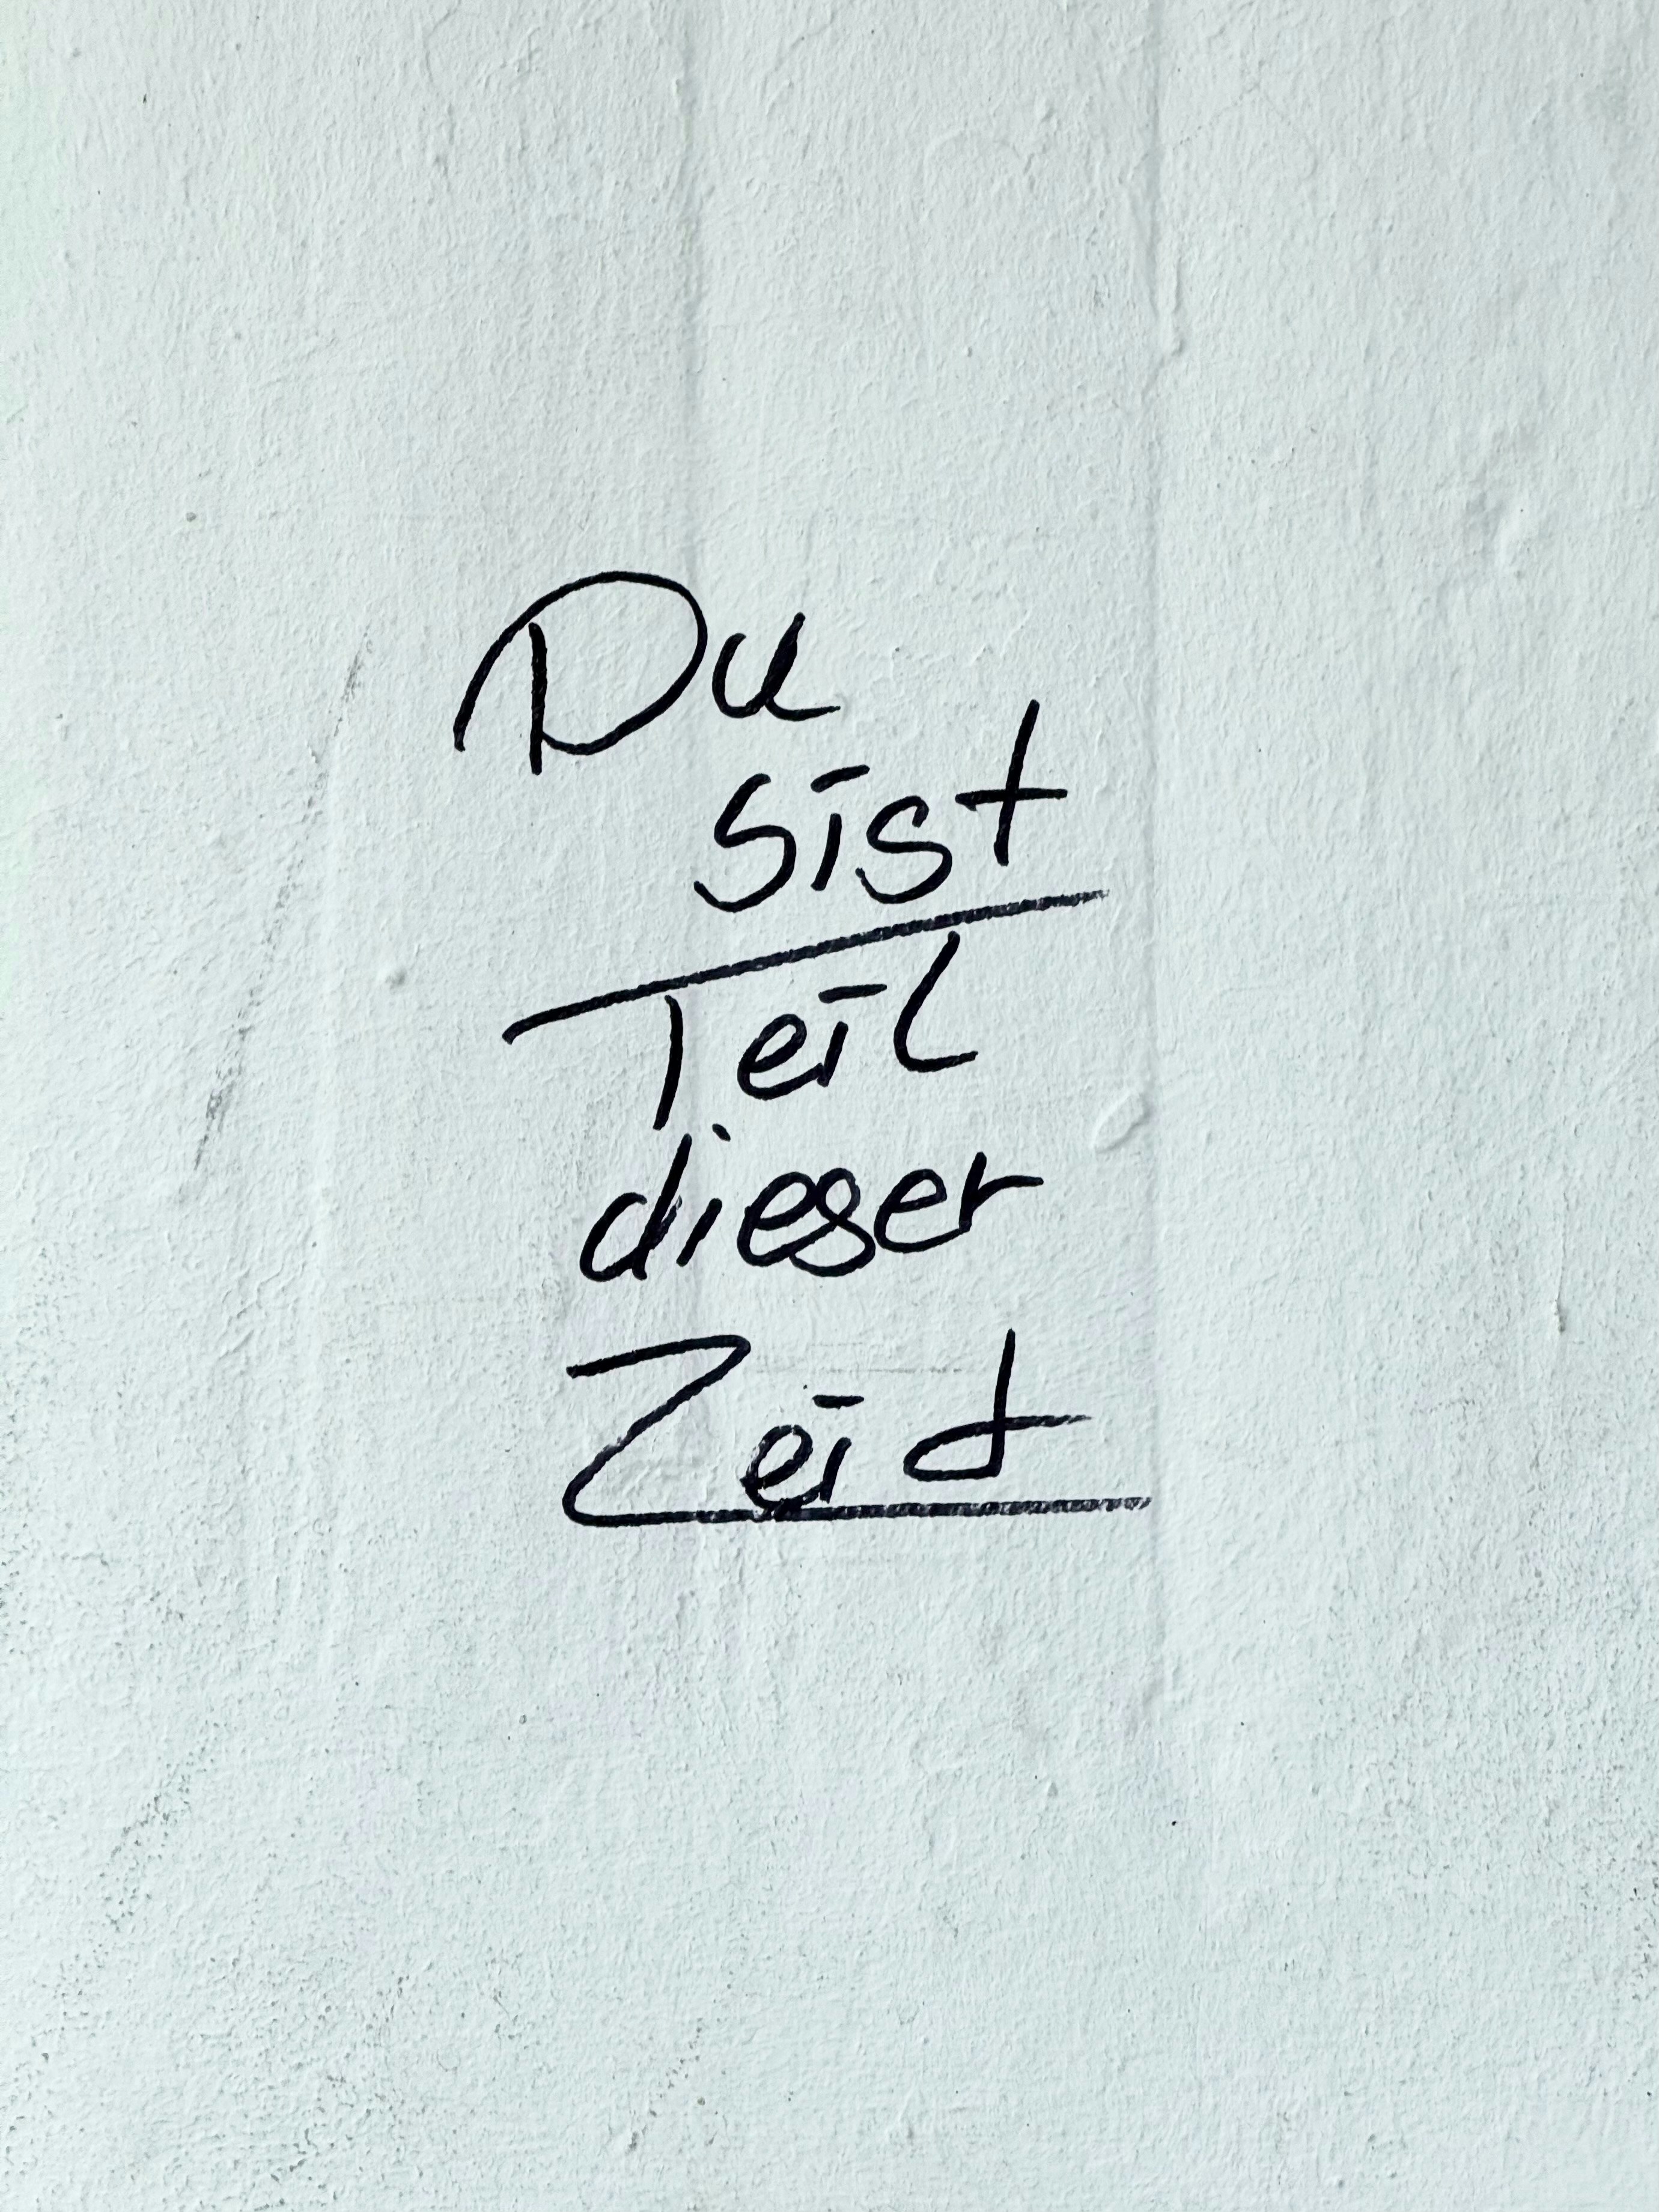 Du
sist
Teil
dieser
Zeit